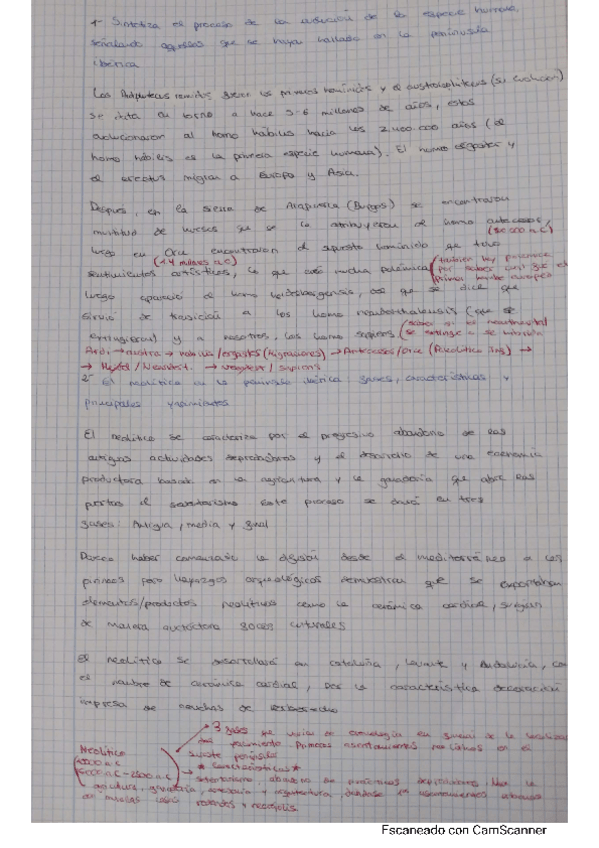 1- Sintetiza el proceso de la evolución de la especie humana,
señalando aquellos que se hayan hallado en la península
ibérica
Los Ardipitecus ramidus fueron los primeros homínicos y el australopithecus (su evolución)
se data en torno a hace 5-6 millones de años, estos
evolucionaron al homo habilis hacia los 2.400.000 años (el
homo habilis es la primera especie humana). El homo ergaster y
el erectus migran a Europa y Asia.
Después, en la sierra de Atapuerca (Burgos) se encontraron
multitud de huesos que se le atribuyeron al homo antecessor,
luego en Orce encontraron el supuesto homínido que tuvo
(1.4 millones a.C)
sentimientos artísticos, lo que creó mucha polémica (también hay polémica
por saber cual fue el
primer hombre europeo
luego apareció el homo heidelbergensis, del que se dice que
sirvió de transición a los homo neanderthalensis (que se
extinguieron) y a nosotros, los homo sapiens
Ardi → austra → habilis/ergaster (migraciones) → Antecessor/Orce (Paleolítico Inf) →
→ Heidel / Neandert. → / sapiens
2- El neolítico en la península ibérica: fases, características y
principales yacimientos
El neolítico se caracteriza por el progresivo abandono de las
antiguas actividades depredadoras y el desarrollo de una economía
productora basada en la agricultura y la ganadería que abre las
puertas al sedentarismo. Este proceso se divide en tres
fases: Antigua, media y final
Parece haber comenzado la difusión desde el mediterráneo a los
pirineos pero hallazgos arqueológicos demuestran que se exportaban
elementos/productos neolíticos como la cerámica cardial, surgían
de manera autóctona focos culturales
El neolítico se desarrolló en cataluña, Levante y Andalucía, con
el nombre de cerámica cardial, por la característica decoración
impresa de conchas de berberecho
3 fases que varian de cronología en función de la localización
del yacimiento. Primeros asentamientos neolíticos en el
sureste peninsular
Neolítico
5000 a.C - 2500 a.C
* Características *
sedentarismo, abandono de prácticas depredadoras,
agricultura, ganadería, artesanía y arquitectura,
Escaneado con CamScanner